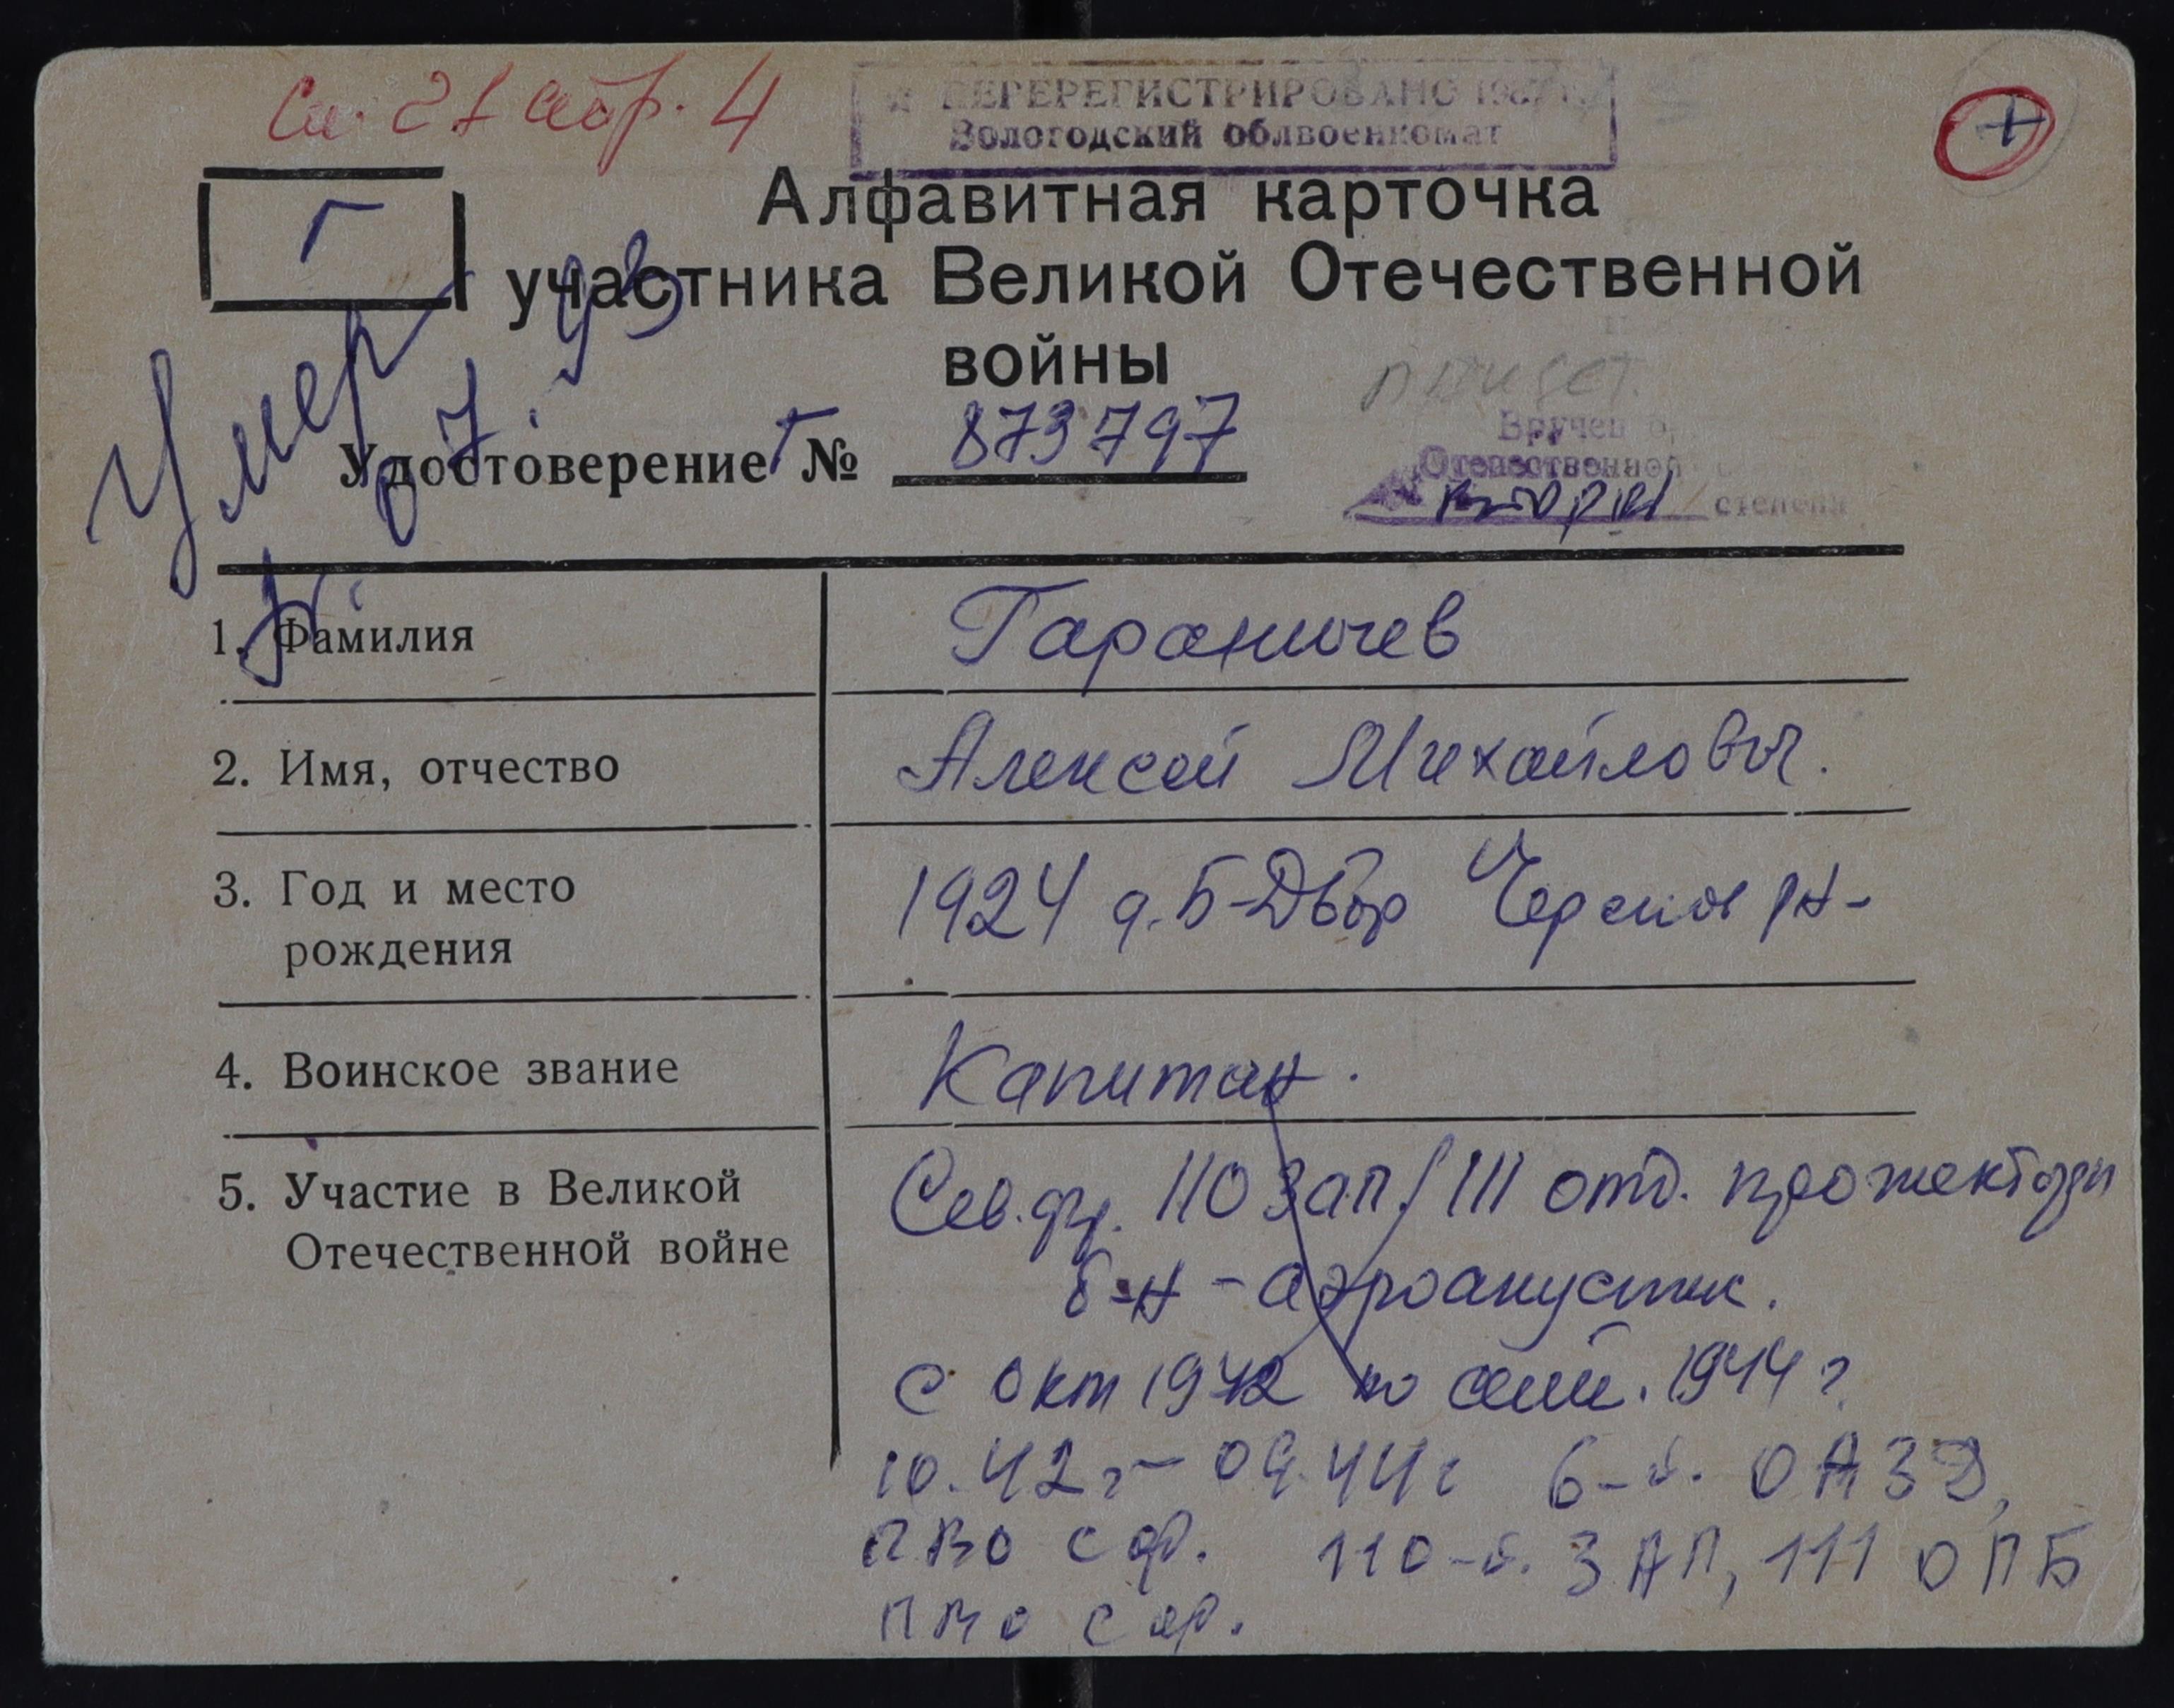 Сп. 21 стр. 4
ПЕРЕРЕГИСТРИРОВАНО 1987 г.
Вологодский облвоенкомат
+
Г
Алфавитная карточка
участника Великой Отечественной
войны
Умер 07.93
Удостоверение Г № 873797
Вручен ор
Отечественной
второй степени
1. Фамилия Гараничев
2. Имя, отчество Алексей Михайлович.
3. Год и место рождения 1924 д. Б-Двор Черепов р-н
4. Воинское звание Капитан.
5. Участие в Великой Отечественной войне Сев. фр. 110 зап / 111 отд. прожекторн
б-н - аэроакустик.
с окт 1942 по сент. 1944 г
10.42 г - 09.44 г 6-й. ОАЗД,
ПВО С ф. 110-й. ЗАП, 111 ОПБ
ПВО С ф.